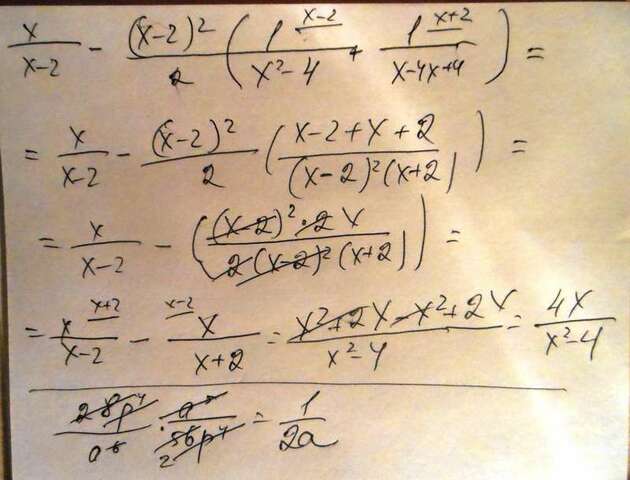 x/(x-2) - (x-2)²/2 (1^(x-2)/(x²-4) + 1^(x+2)/(x-4x+4)) =
= x/(x-2) - (x-2)²/2 ((x-2+x+2)/((x-2)²(x+2))) =
= x/(x-2) - ((x-2)²·2x/(2(x-2)²(x+2))) =
= x^(x+2)/(x-2) - ^(x-2)x/(x+2) = (x²+2x-x²+2x)/(x²-4) = 4x/(x²-4)
28p⁴/a⁶ · a⁵/56p⁴ 2 = 1/2a